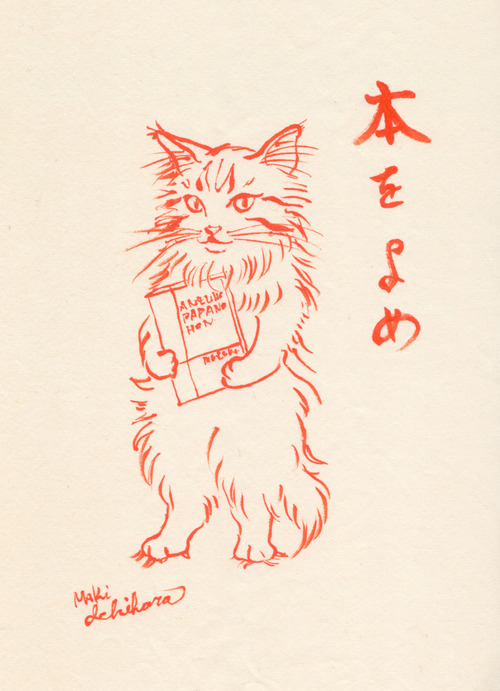 本をよめ
ANZUNO
PAPANO
HON
Maki
Ichihara